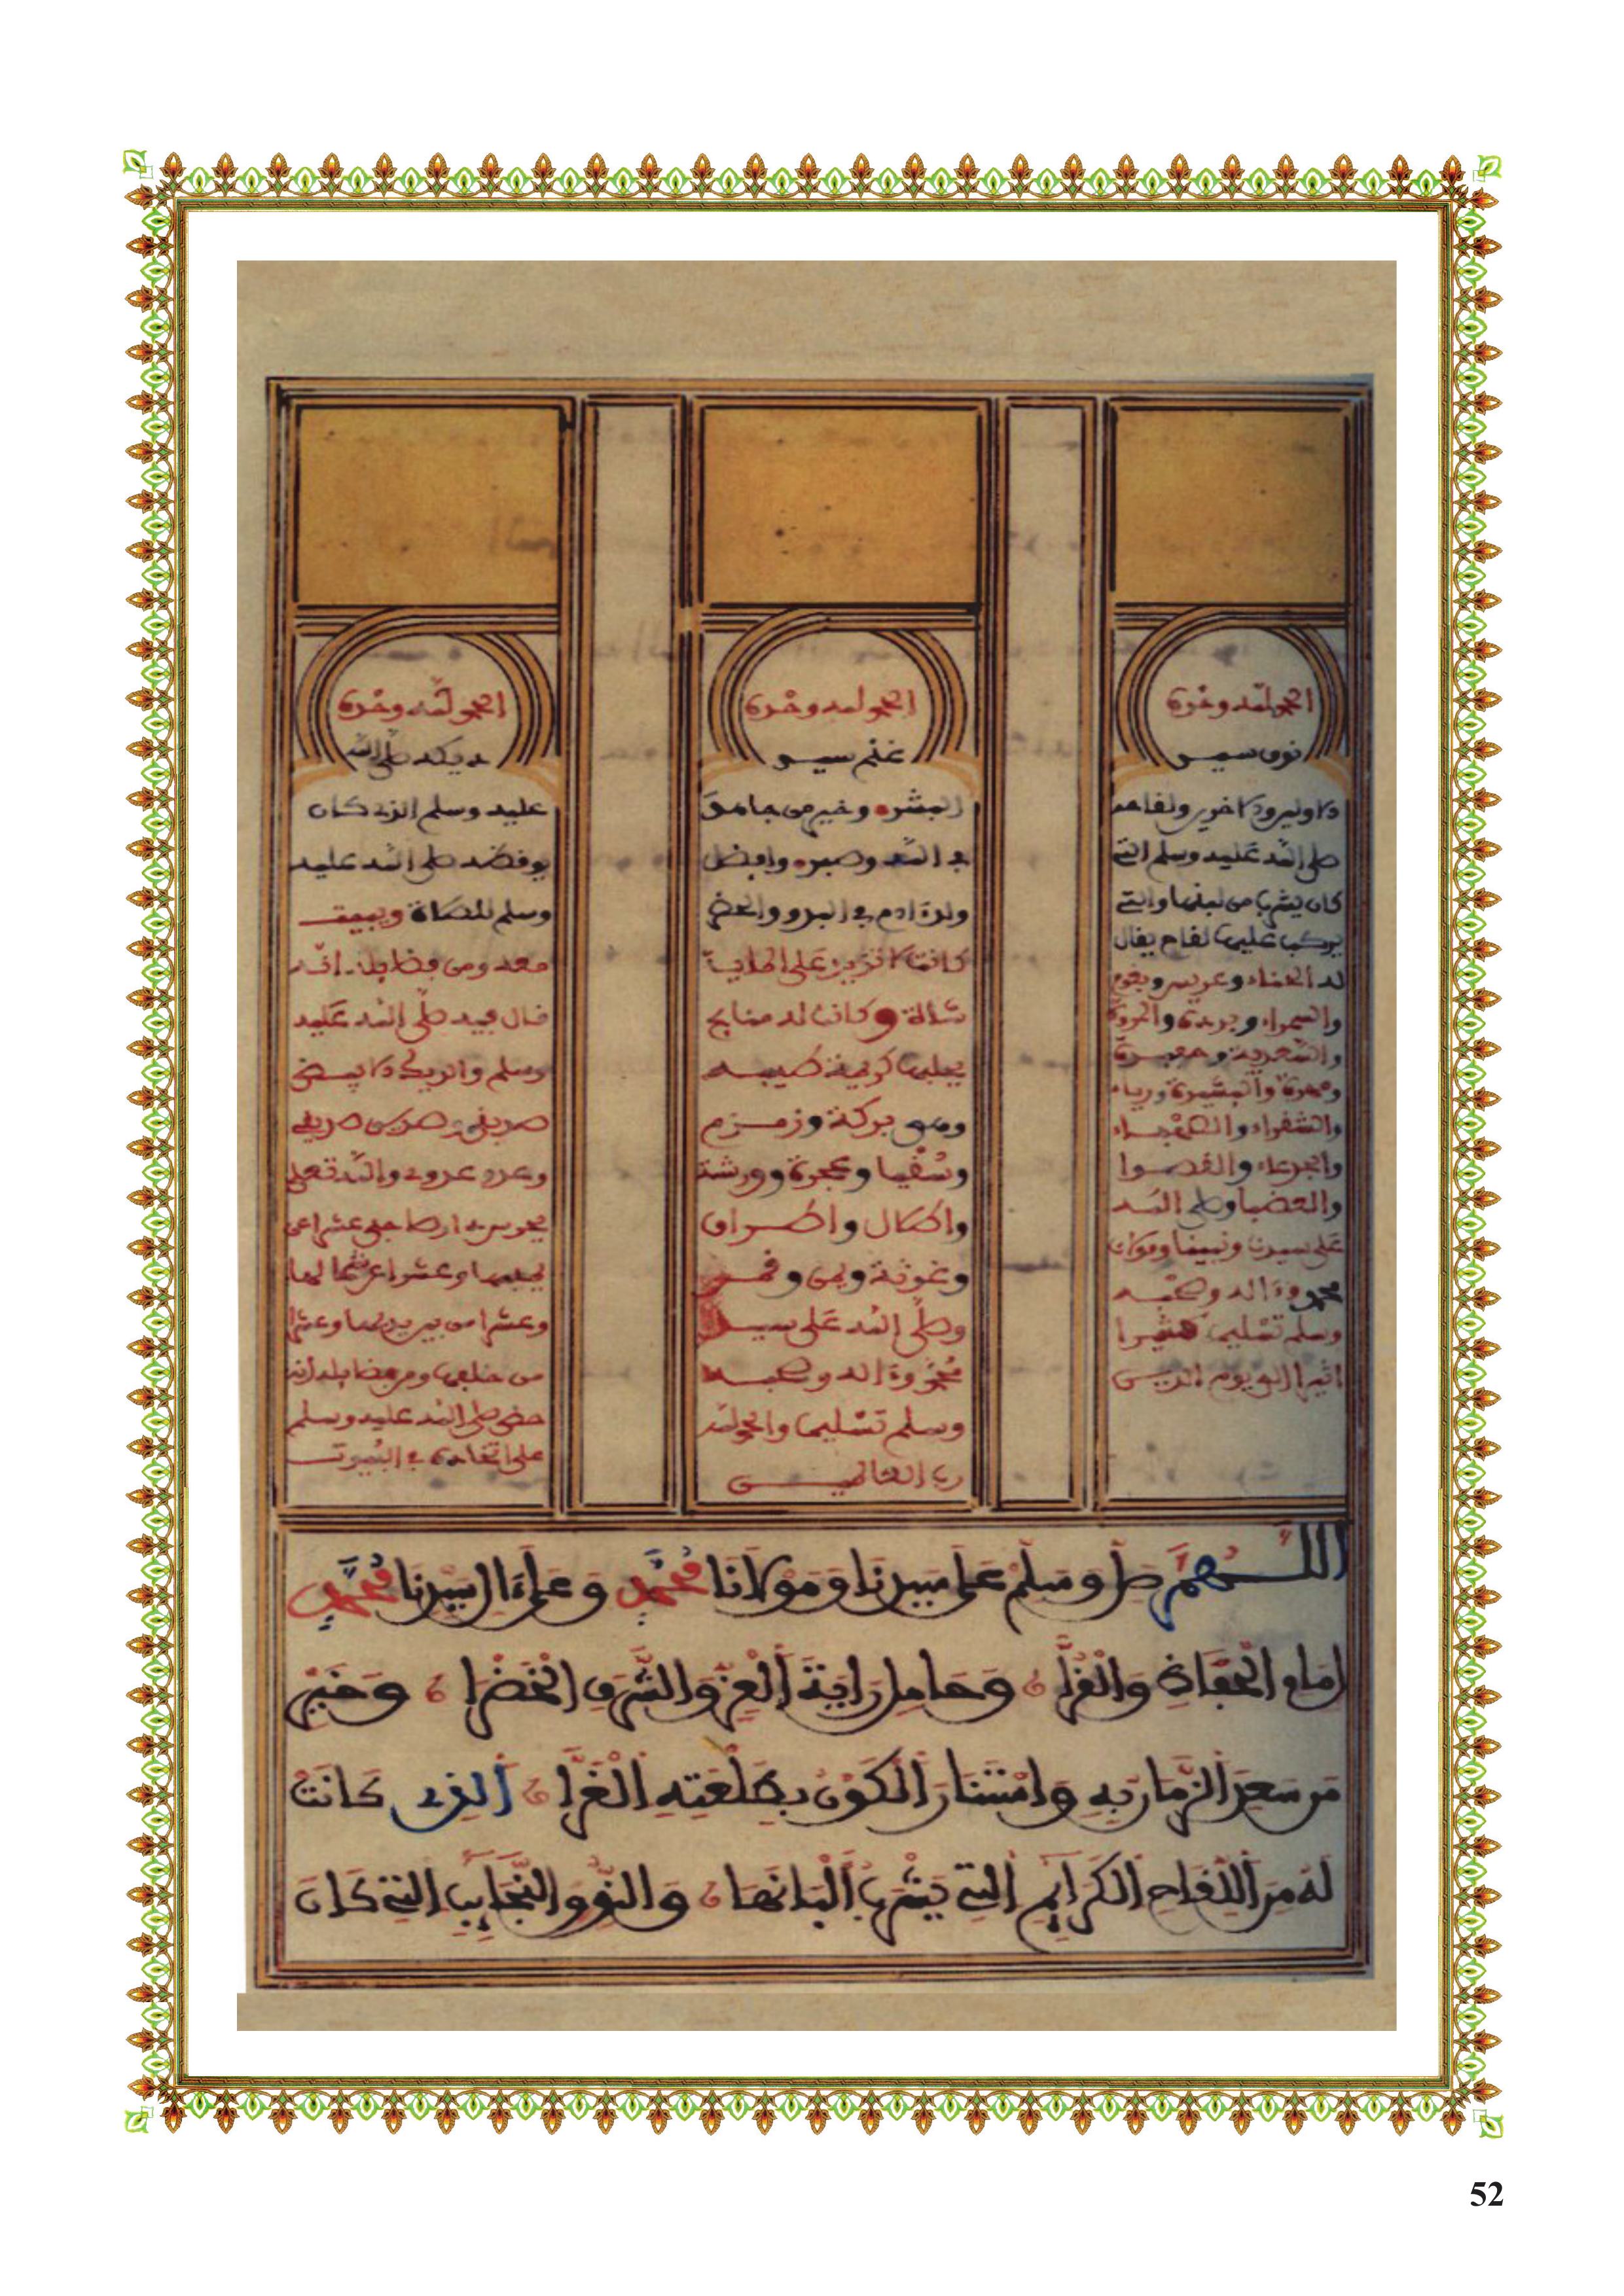 الحمد لله وحده
نوق سيد
الاولين والاخرين ولقاحه
صلى الله عليه وسلم التي
كان يشرب من لبنها والتي
يركب عليها لقاح يقال
لها الحناء وعريس وبغوم
والسمراء وبردة والمروة
والسعدية وحفيدة
ومهرة واليسيرة ورياء
والشقراء والصهباء
والجدعاء والقصوا
والعضبا وصلى الله
على سيدنا ونبينا ومولانا
محمد وءاله وصحبه
وسلم تسليما كثيرا
اثيرا الى يوم الدين
الحمد لله وحده
غنم سيد
البشر وخير من جاهد
في الله وصبر وافضل
ولد ءادم في البدو والحضر
كانت ترد على الماية
شاة وكانت له منايح
يحلبها كريمة طيبة
وهي بركة وزمزم
وسقيا وعجرة وورشة
واطلال واطراف
وغوثة ويمن وقمر
وصلى الله على سيدنا
محمد وءاله وصحبه
وسلم تسليما والحمد لله
رب العالمين
الحمد لله وحده
ديكه صلى الله
عليه وسلم الذي كان
يوقظه صلى الله عليه
وسلم للصلاة ويبيت
معه ومن فضايله انه
قال فيه صلى الله عليه
وسلم والديك الابيض
صديقي وصديق صديقي
وعدو عدوي والله تعلى
يحرس دار صاحبه عشرا عن
يمينها وعشرا عن شمالها
وعشرا من بين يديها وعشرا
من خلفها ومن فضايله انه
حض صلى الله عليه وسلم
على اتخاذه في البيوت
اللَّهُمَّ صَلِّ وَسَلِّمْ عَلَى سَيِّدِنَا وَمَوْلَانَا مُحَمَّدٍ وَعَلَى ءَالِ سَيِّدِنَا مُحَمَّدٍ
إِمَامِ الْحُفَّاظِ وَالْقُرَّا وَحَامِلِ رَايَةِ الْعِزِّ وَالشَّرَفِ الْخَضْرَا وَخَيْرِ
مَن سَعِدَ الزَّمَانُ بِهِ وَامْتَنَارَ الْكَوْنُ بِطَلْعَتِهِ الْغَرَّا الَّذِي كَانَتْ
لَهُ مِنَ اللِّقَاحِ الْكَرَايِمِ التِي يَشْرَبُ أَلْبَانَهَا وَالنُّوقِ النَّجَايِبِ التِي كَانَ
52